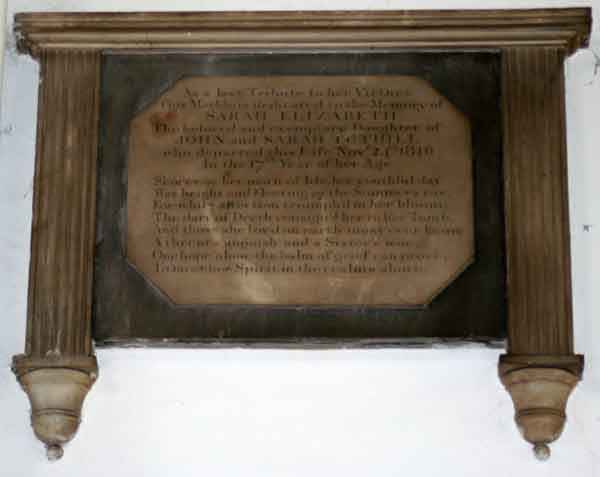 As a last Tribute to her Virtues
This Marble is dedicated to the Memory of
SARAH ELIZABETH
The beloved and exemplary Daughter of
JOHN and SARAH TOTHILL
who departed this Life Novr 24th 1810
In the 17th Year of her Age
her morn of life, her youthful day
Was bright and fleeting as the Summers ray
affection triumph'd in her bloom
The dart of Death consign'd her to her Tomb
And those she lov'd on earth must ever know
A Parent's anguish and a Sister's woe
One hope alone the balm of grief can prove
To meet her Spirit in the realms above